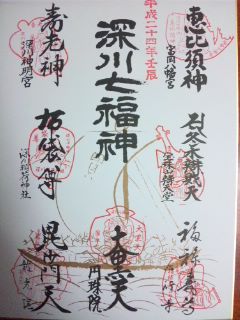 恵比須神
富岡八幡宮
弁財天
冬木弁天堂
福禄寿
平成二十四年壬辰
深川七福神
大黒天
円珠院
寿老神
深川神明宮
布袋尊
深川稲荷神社
毘沙門天
龍光院